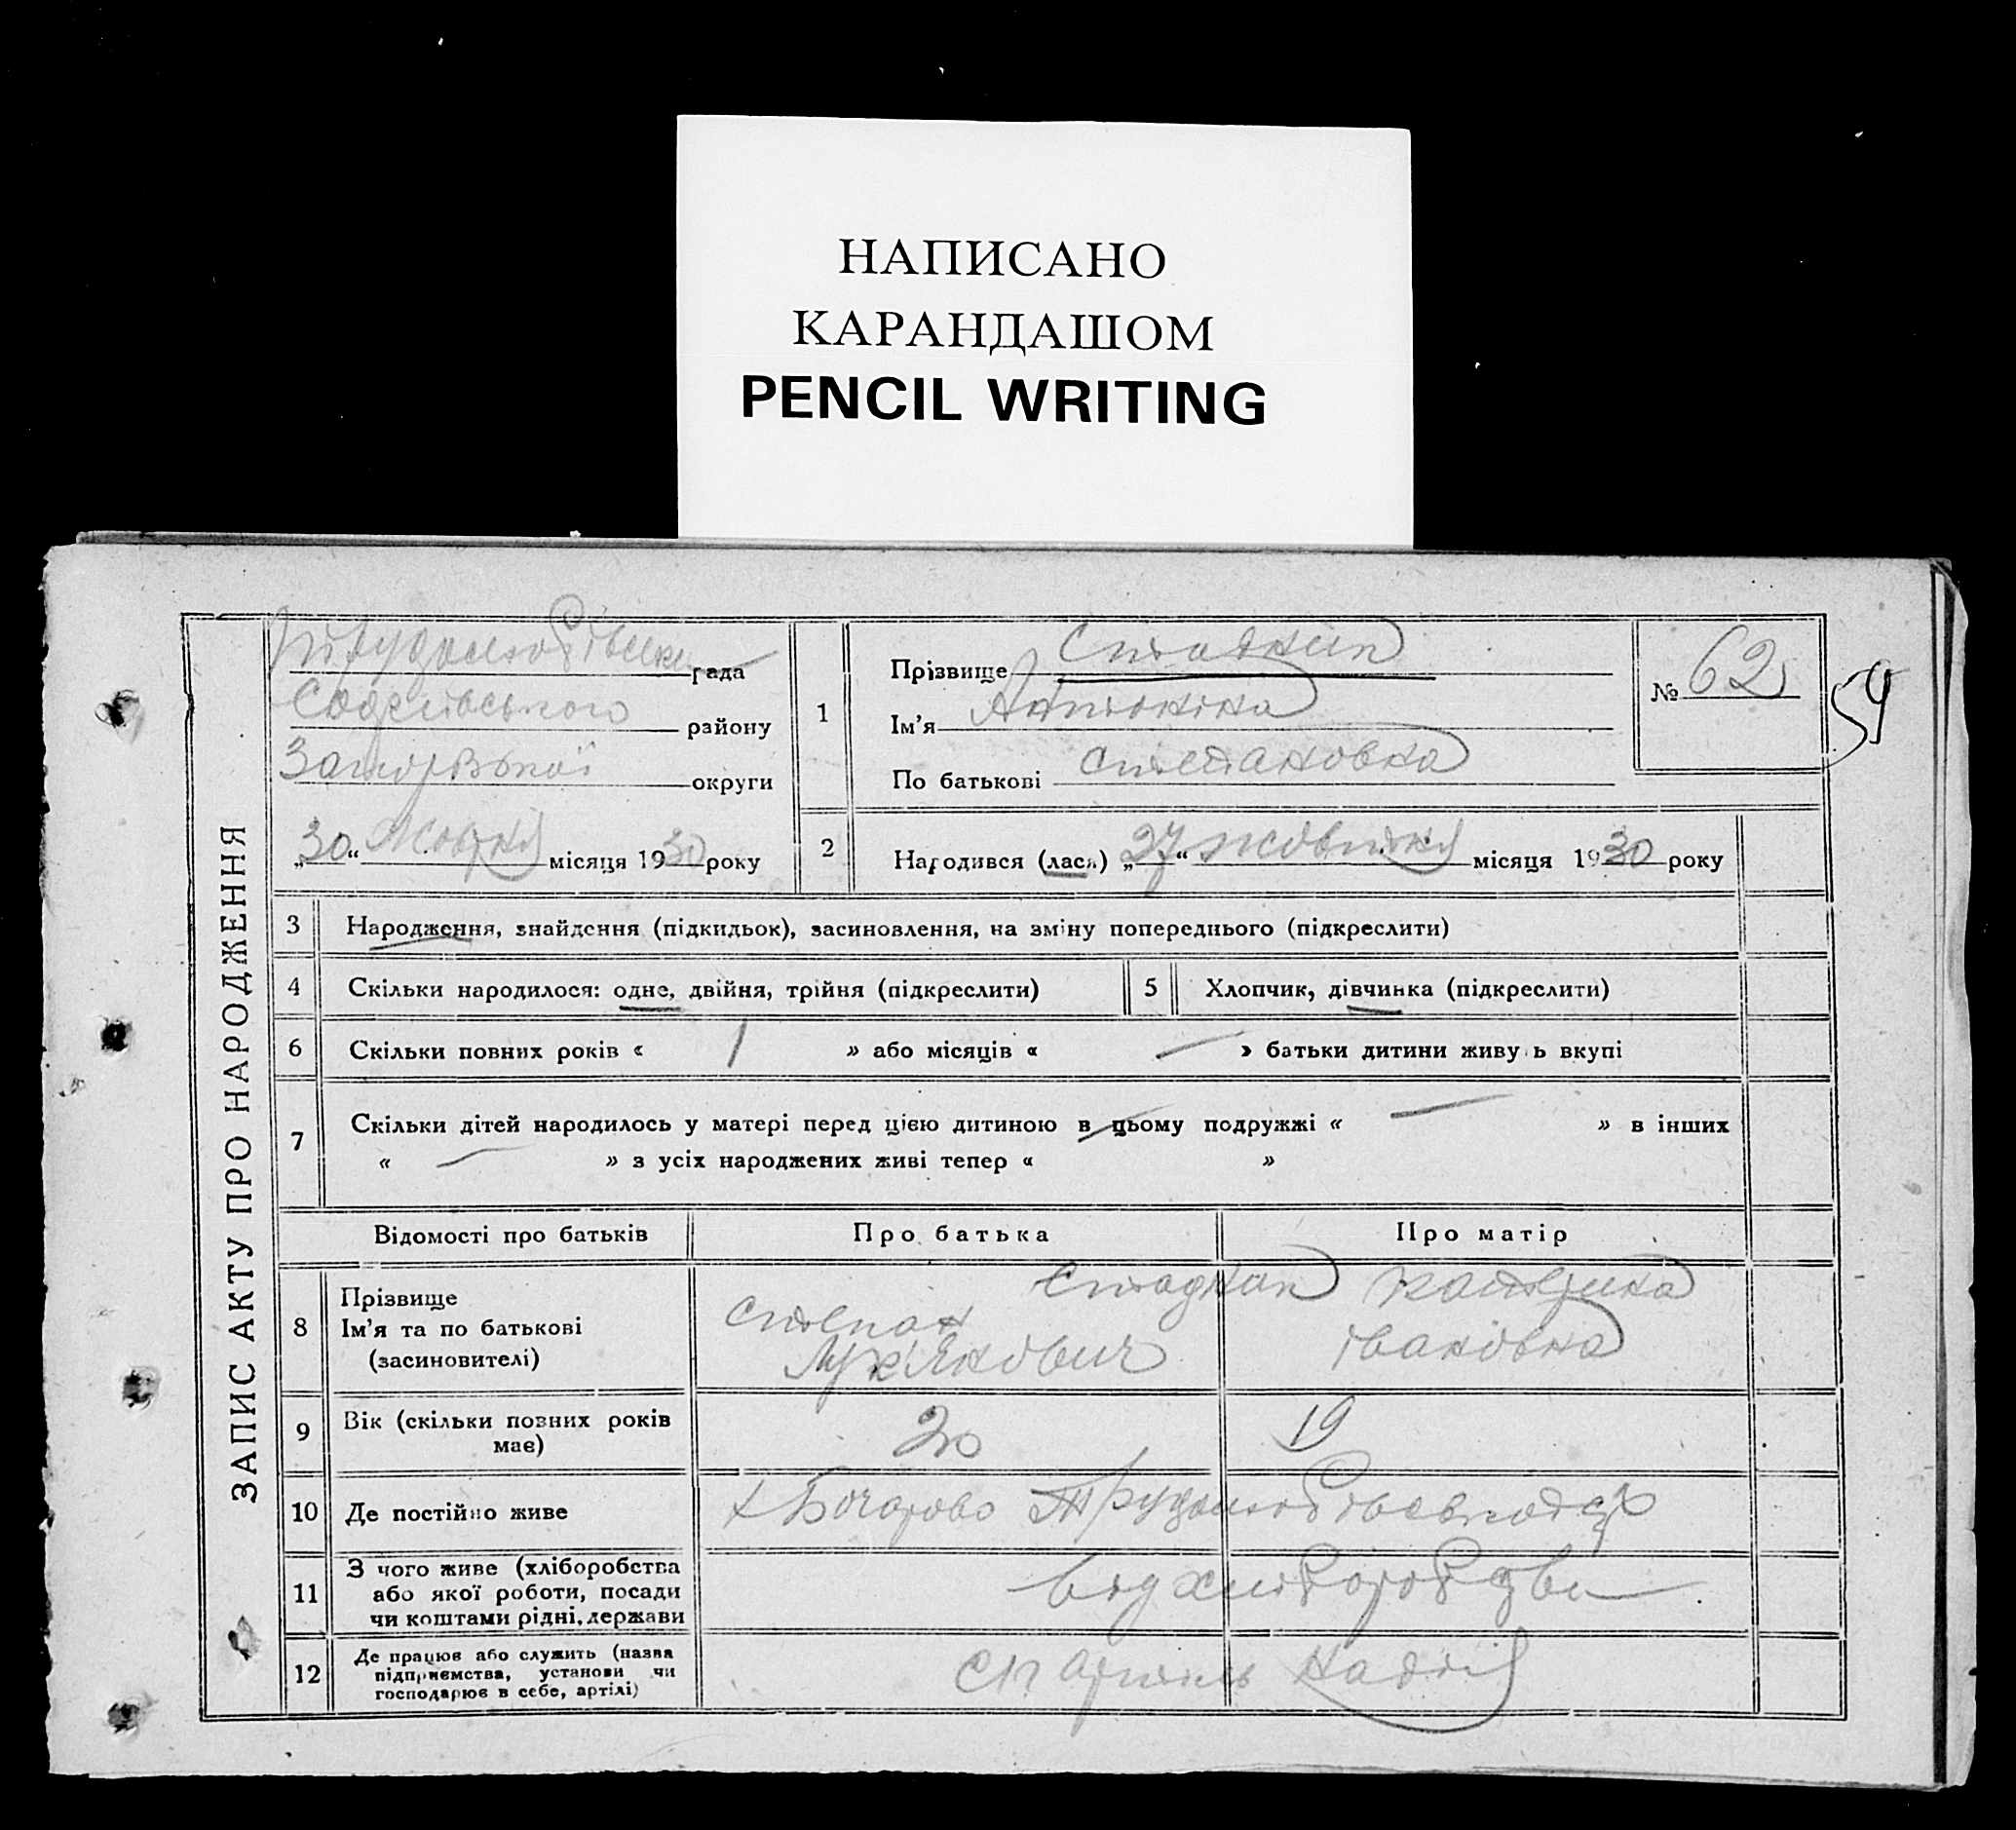 НАПИСАНО
КАРАНДАШОМ
PENCIL WRITING
ЗАПИС АКТУ ПРО НАРОДЖЕННЯ
рада
району
округи
„30“ Жовтня місяця 1930 року
1
Прізвище
Ім'я Антоніна
По батькові Степановна
№ 62
59
2
Народився (лася) „27“ жовтня місяця 1930 року
3 Народження, знайдення (підкидьок), засиновлення, на зміну попереднього (підкреслити)
4 Скільки народилося: одне, двійня, трійня (підкреслити)
5 Хлопчик, дівчинка (підкреслити)
6 Скільки повних років « 1 » або місяців « — » батьки дитини живуть вкупі
7 Скільки дітей народилось у матері перед цією дитиною в цьому подружжі « — » в інших
« — » з усіх народжених живі тепер « »
Відомості про батьків
Про батька
Про матір
8
Прізвище
Ім'я та по батькові
(засиновителі)
Степан
Лук'янович
Катерина
Івановна
9
Вік (скільки повних років
має)
20
19
10 Де постійно живе
11
З чого живе (хліборобства
або якої роботи, посади
чи коштами рідні, держави
12
Де працює або служить (назва
підприємства, установи чи
господарює в себе, артілі)
Артіль Надія